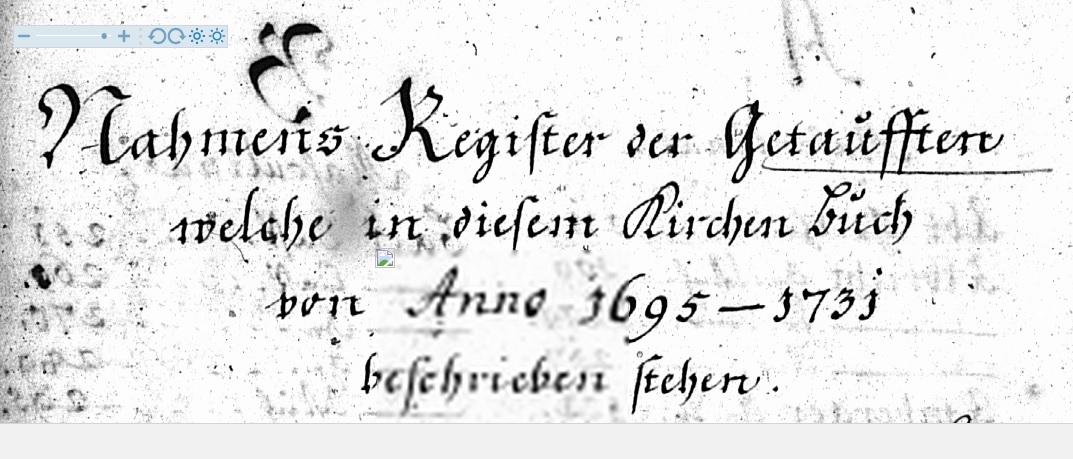 Nahmens Register der Getaufften
welche in diesem Kirchen buch
von Anno 1695 – 1731
beschrieben stehen.